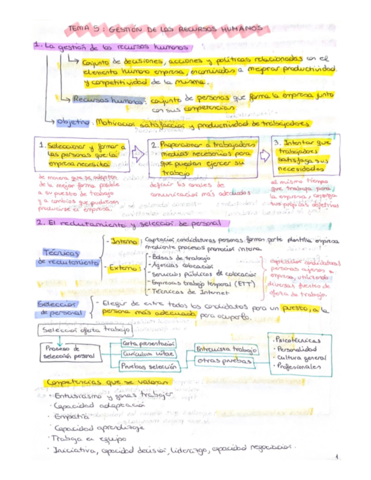 TEMA 5: GESTIÓN DE LOS RECURSOS HUMANOS
1. La gestión de los recursos humanos
Conjunto de decisiones, acciones y políticas relacionadas con el
elemento humano empresa, encaminadas a mejorar productividad
y competitividad de la misma.
Recursos humanos: conjunto de personas que forma la empresa junto
con sus competencias
Objetivo: Motivación satisfacción y productividad de trabajadores
1. Seleccionar y formar a
las personas que la
empresa necesita
2. Proporcionar a trabajadores
medios necesarios para
que puedan ejercer su
trabajo
3. Intentar que
trabajadores
satisfaga sus
necesidades
de manera que se adapten
de la mejor forma posible
a su puesto de trabajo
y a cambios que pudieran
producirse en empresa.
definir los canales de
comunicación más adecuados
al mismo tiempo
que trabaja para
la empresa y consiga
sus propios objetivos
2. El reclutamiento y selección de personal
Técnicas
de reclutamiento
Interno: Captación candidaturas personas forman parte plantilla empresa
mediante procesos promoción interna.
Externo:
- Bolsas de trabajo
- Agencias colocación
- Servicios públicos de colocación
- Empresas trabajo temporal (ETT)
- Técnicas de Internet
captación candidaturas
personas ajenas a
empresa, utilizando
diversas fuentes de
oferta de trabajo.
Selección
de personal
- Elegir de entre todos los candidatos para un puesto, a la
persona más adecuada para ocuparlo.
Selección oferta trabajo
Proceso de
selección personal
Carta presentación
Currículum vitae
Pruebas selección
Entrevista trabajo
otras pruebas
- Psicotécnicas
- Personalidad
- Cultura general
- Profesionales
Competencias que se valoran
· Entusiasmo y ganas trabajar
· Capacidad adaptación
· Empatía
· Capacidad aprendizaje
· Trabajo en equipo
· Iniciativa, capacidad decisión, liderazgo, capacidad negociación.
1